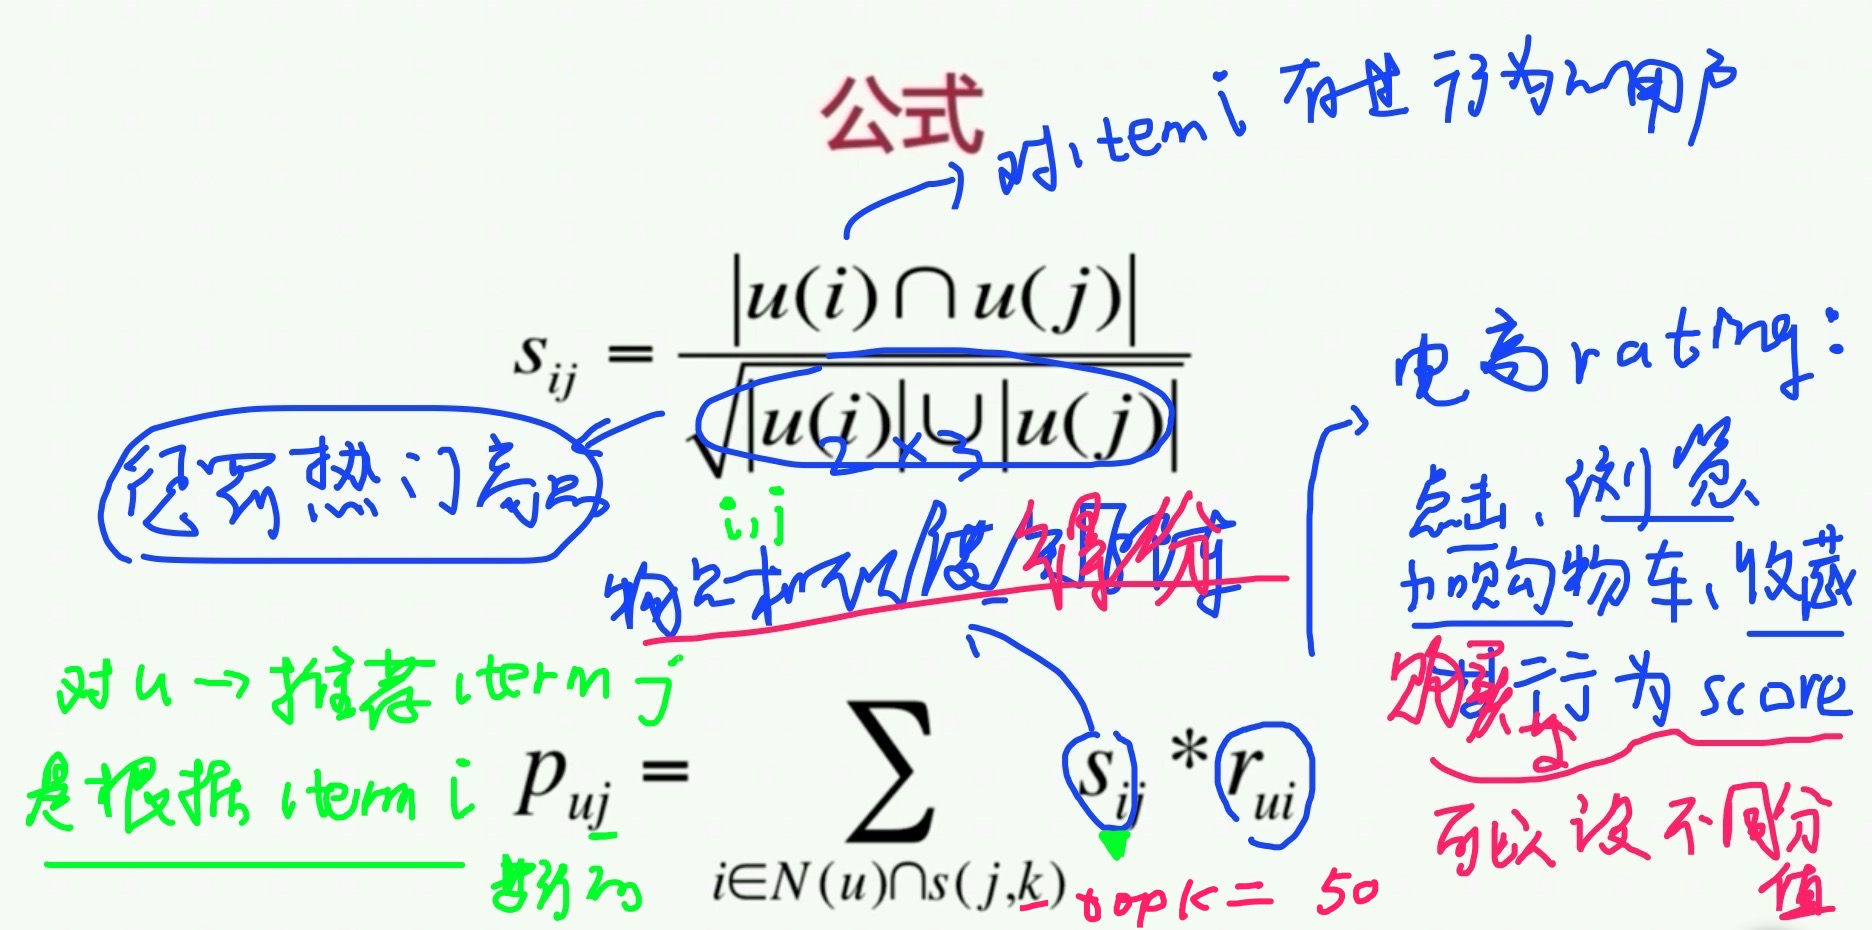 公式
对item i 有过行为的用户
s_{ij} = \frac{|u(i) ∩ u(j)|}{\sqrt{|u(i)| ∪ |u(j)|}}
2 × 3
惩罚热门商品
i,j
物品相似度
得分
电商rating:
点击、浏览
加购物车、收藏
购买 行为score
可以设不同分值
对u → 推荐item j
是根据item i
p_{uj} = \sum_{i∈N(u)∩s(j,k)} s_{ij} * r_{ui}
topk = 50